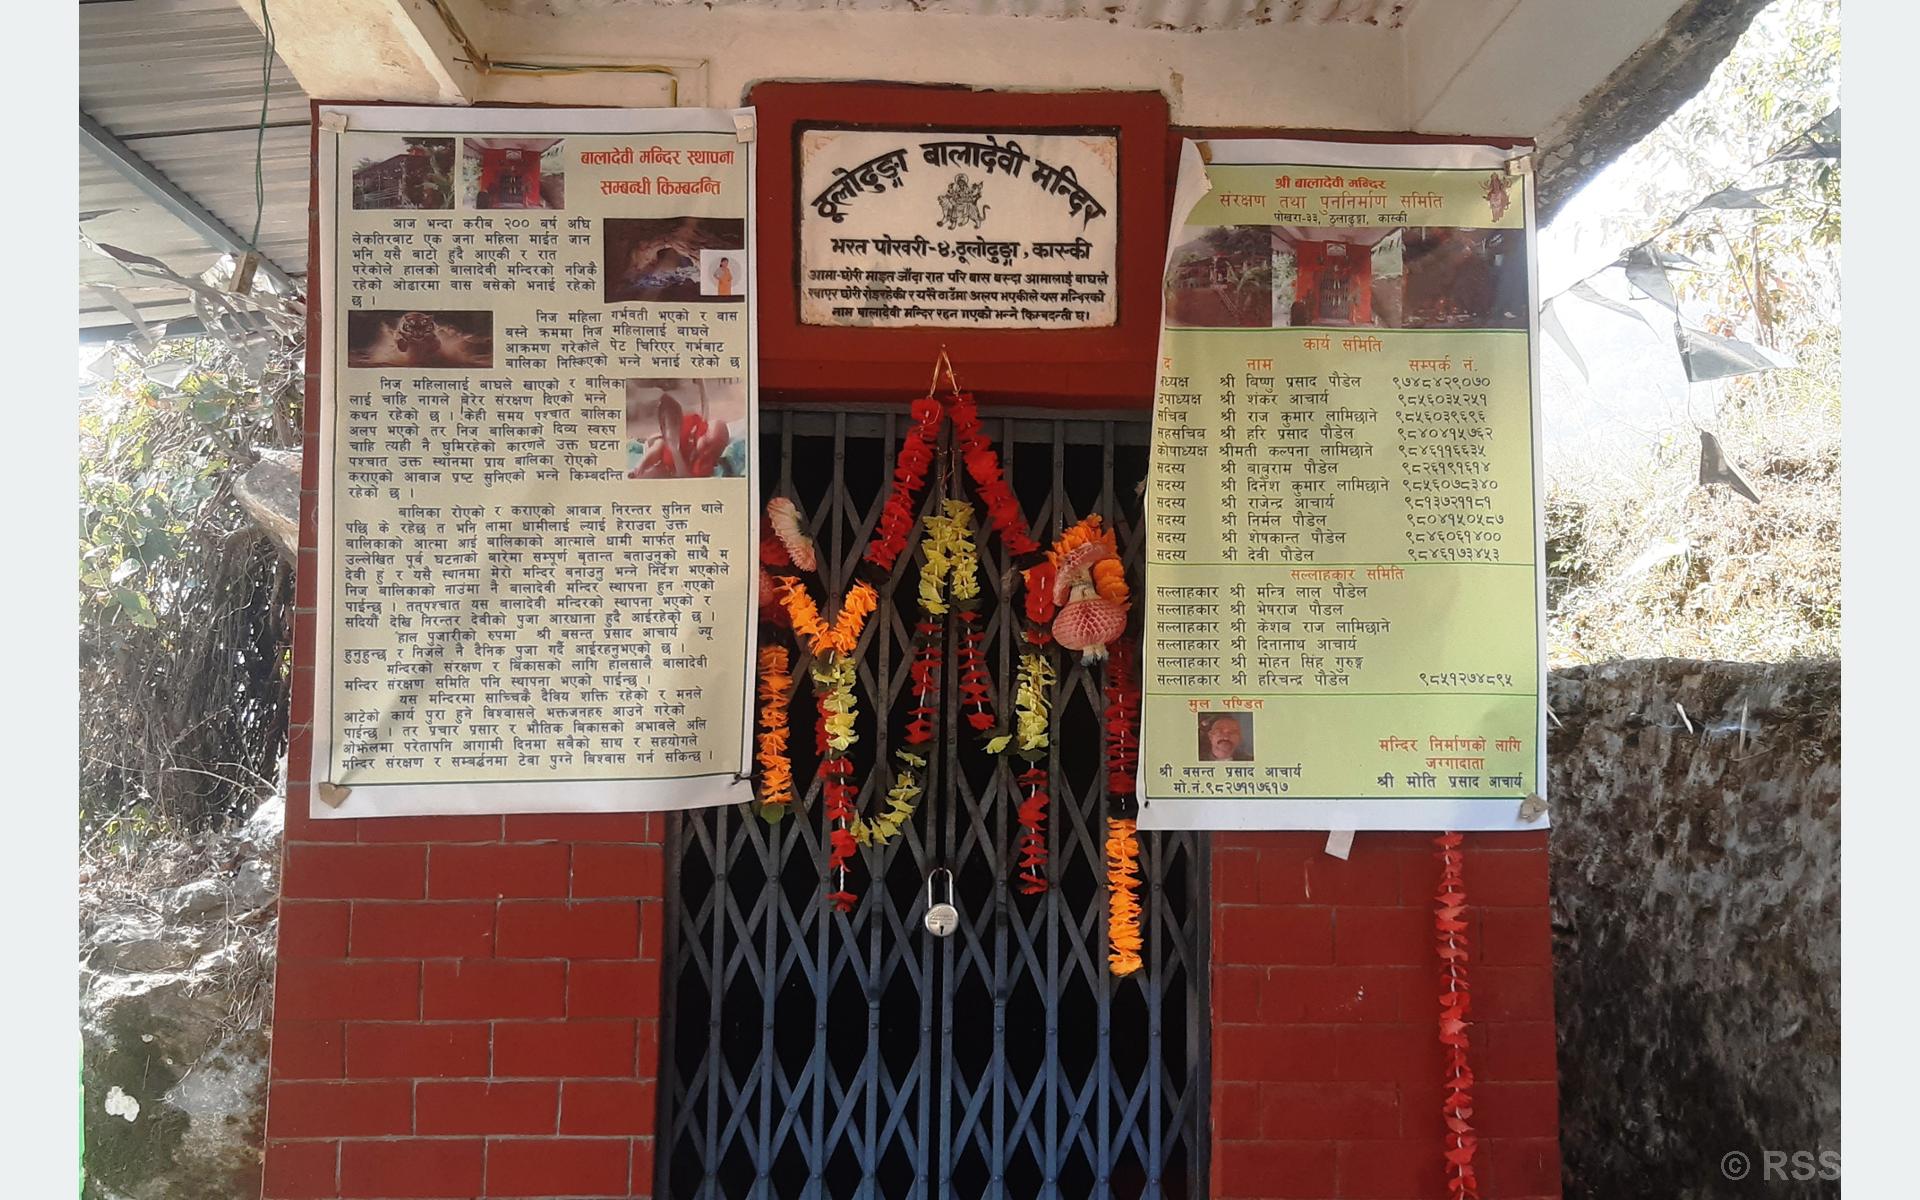 बालादेवी मन्दिर स्थापना
सम्बन्धी किम्बदन्ति
आज भन्दा करीब २०० बर्ष अघि
लेकतिरबाट एक जना महिला माईत जान
भनि यसै बाटो हुदै आएकी र रात
परेकोले हालको बालादेवी मन्दिरको नजिकै
रहेको ओढारमा वास बसेको भनाई रहेको
छ ।
निज महिला गर्भवती भएको र वास
बस्ने क्रममा निज महिलालाई बाघले
आक्रमण गरेकोले पेट चिरिएर गर्भबाट
बालिका निस्किएको भन्ने भनाई रहेको छ
निज महिलालाई बाघले खाएको र बालिका
लाई चाहि नागले बेरेर संरक्षण दिएको भन्ने
कथन रहेको छ । केही समय पश्चात बालिका
अलप भएको तर निज बालिकाको दिव्य स्वरुप
चाहि त्यही नै घुमिरहेको कारणले उक्त घटना
पश्चात उक्त स्थानमा प्राय बालिका रोएको
कराएको आवाज प्रष्ट सुनिएको भन्ने किम्बदन्ति
रहेको छ ।
बालिका रोएको र कराएको आबाज निरन्तर सुनिन थाले
पछि के रहेछ त भनि लामा धामीलाई ल्याई हेराउदा उक्त
बालिकाको आत्मा आई बालिकाको आत्माले धामी मार्फत माथि
उल्लेखित पूर्व घटनाको बारेमा सम्पूर्ण बृतान्त बताउनुको साथै म
देवी हु र यसै स्थानमा मेरो मन्दिर बनाउनु भन्ने निर्देश भएकोले
निज बालिकाको नाउंमा नै बालादेवी मन्दिर स्थापना हुन गएको
पाईन्छ । तत्पश्चात यस बालादेवी मन्दिरको स्थापना भएको र
सदियौं देखि निरन्तर देवीको पुजा आरधाना हुदै आईरहेको छ ।
हाल पुजारीको रुपमा श्री बसन्त प्रसाद आचार्य ज्यू
हुनुहुन्छ र निजले नै दैनिक पुजा गर्दै आईरहनुभएको छ ।
मन्दिरको संरक्षण र बिकासको लागि हालसालै बालादेवी
मन्दिर संरक्षण समिति पनि स्थापना भएको पाईन्छ ।
यस मन्दिरमा साच्चिकै दैविय शक्ति रहेको र मनले
आटेको कार्य पुरा हुने बिश्वासले भक्तजनहरु आउने गरेको
पाईन्छ । तर प्रचार प्रसार र भौतिक बिकासको अभावले अलि
ओझेलमा परेतापनि आगामी दिनमा सबैको साथ र सहयोगले
मन्दिर संरक्षण र सम्बर्द्धनमा टेबा पुग्ने बिश्वास गर्न सकिन्छ ।
ठूलोढुङ्गा बालादेवी मन्दिर
भरत पोखरी-४,ठूलोढुङ्गा, कास्की
आमा-छोरी माइत जाँदा रात परि बास बस्दा आमालाई बाघले
खाएर छोरी रोइरहेकी र यसै ठाउँमा अलप भएकीले यस मन्दिरको
नाम बालादेवी मन्दिर रहन गएको भन्ने किम्बदन्ती छ।
श्री बालादेवी मन्दिर
संरक्षण तथा पुननिर्माण समिति
पोखरा-३३, ठुलाढुङ्गा, कास्की
कार्य समिति
द नाम सम्पर्क नं.
ध्यक्ष श्री बिष्णु प्रसाद पौडेल ९७४८४२९०७०
उपाध्यक्ष श्री शंकर आचार्य ९८५६०३५२५१
सचिब श्री राज कुमार लामिछाने ९८५६०३९६९६
सहसचिब श्री हरि प्रसाद पौडेल ९८४०४१५७६२
कोषाध्यक्ष श्रीमती कल्पना लामिछाने ९८४६११६६३५
सदस्य श्री बाबुराम पौडेल ९८२६१९१६१४
सदस्य श्री दिनेश कुमार लामिछाने ९८५६०७८३४०
सदस्य श्री राजेन्द्र आचार्य ९८१३७२११८१
सदस्य श्री निर्मल पौडेल ९८०४१५०५८७
सदस्य श्री शेषकान्त पौडेल ९८४६०६१४००
सदस्य श्री देवी पौडेल ९८४६१७३४५३
सल्लाहकार समिति
सल्लाहकार श्री मन्त्रि लाल पौडेल
सल्लाहकार श्री भेषराज पौडल
सल्लाहकार श्री केशब राज लामिछाने
सल्लाहकार श्री दिनानाथ आचार्य
सल्लाहकार श्री मोहन सिंह गुरुङ्ग
सल्लाहकार श्री हरिचन्द्र पौडेल ९८५१२७४८९५
मुल पण्डित
श्री बसन्त प्रसाद आचार्य
मो.नं.९८२७११७६१७
मन्दिर निर्माणको लागि
जग्गादाता
श्री मोति प्रसाद आचार्य
© RSS